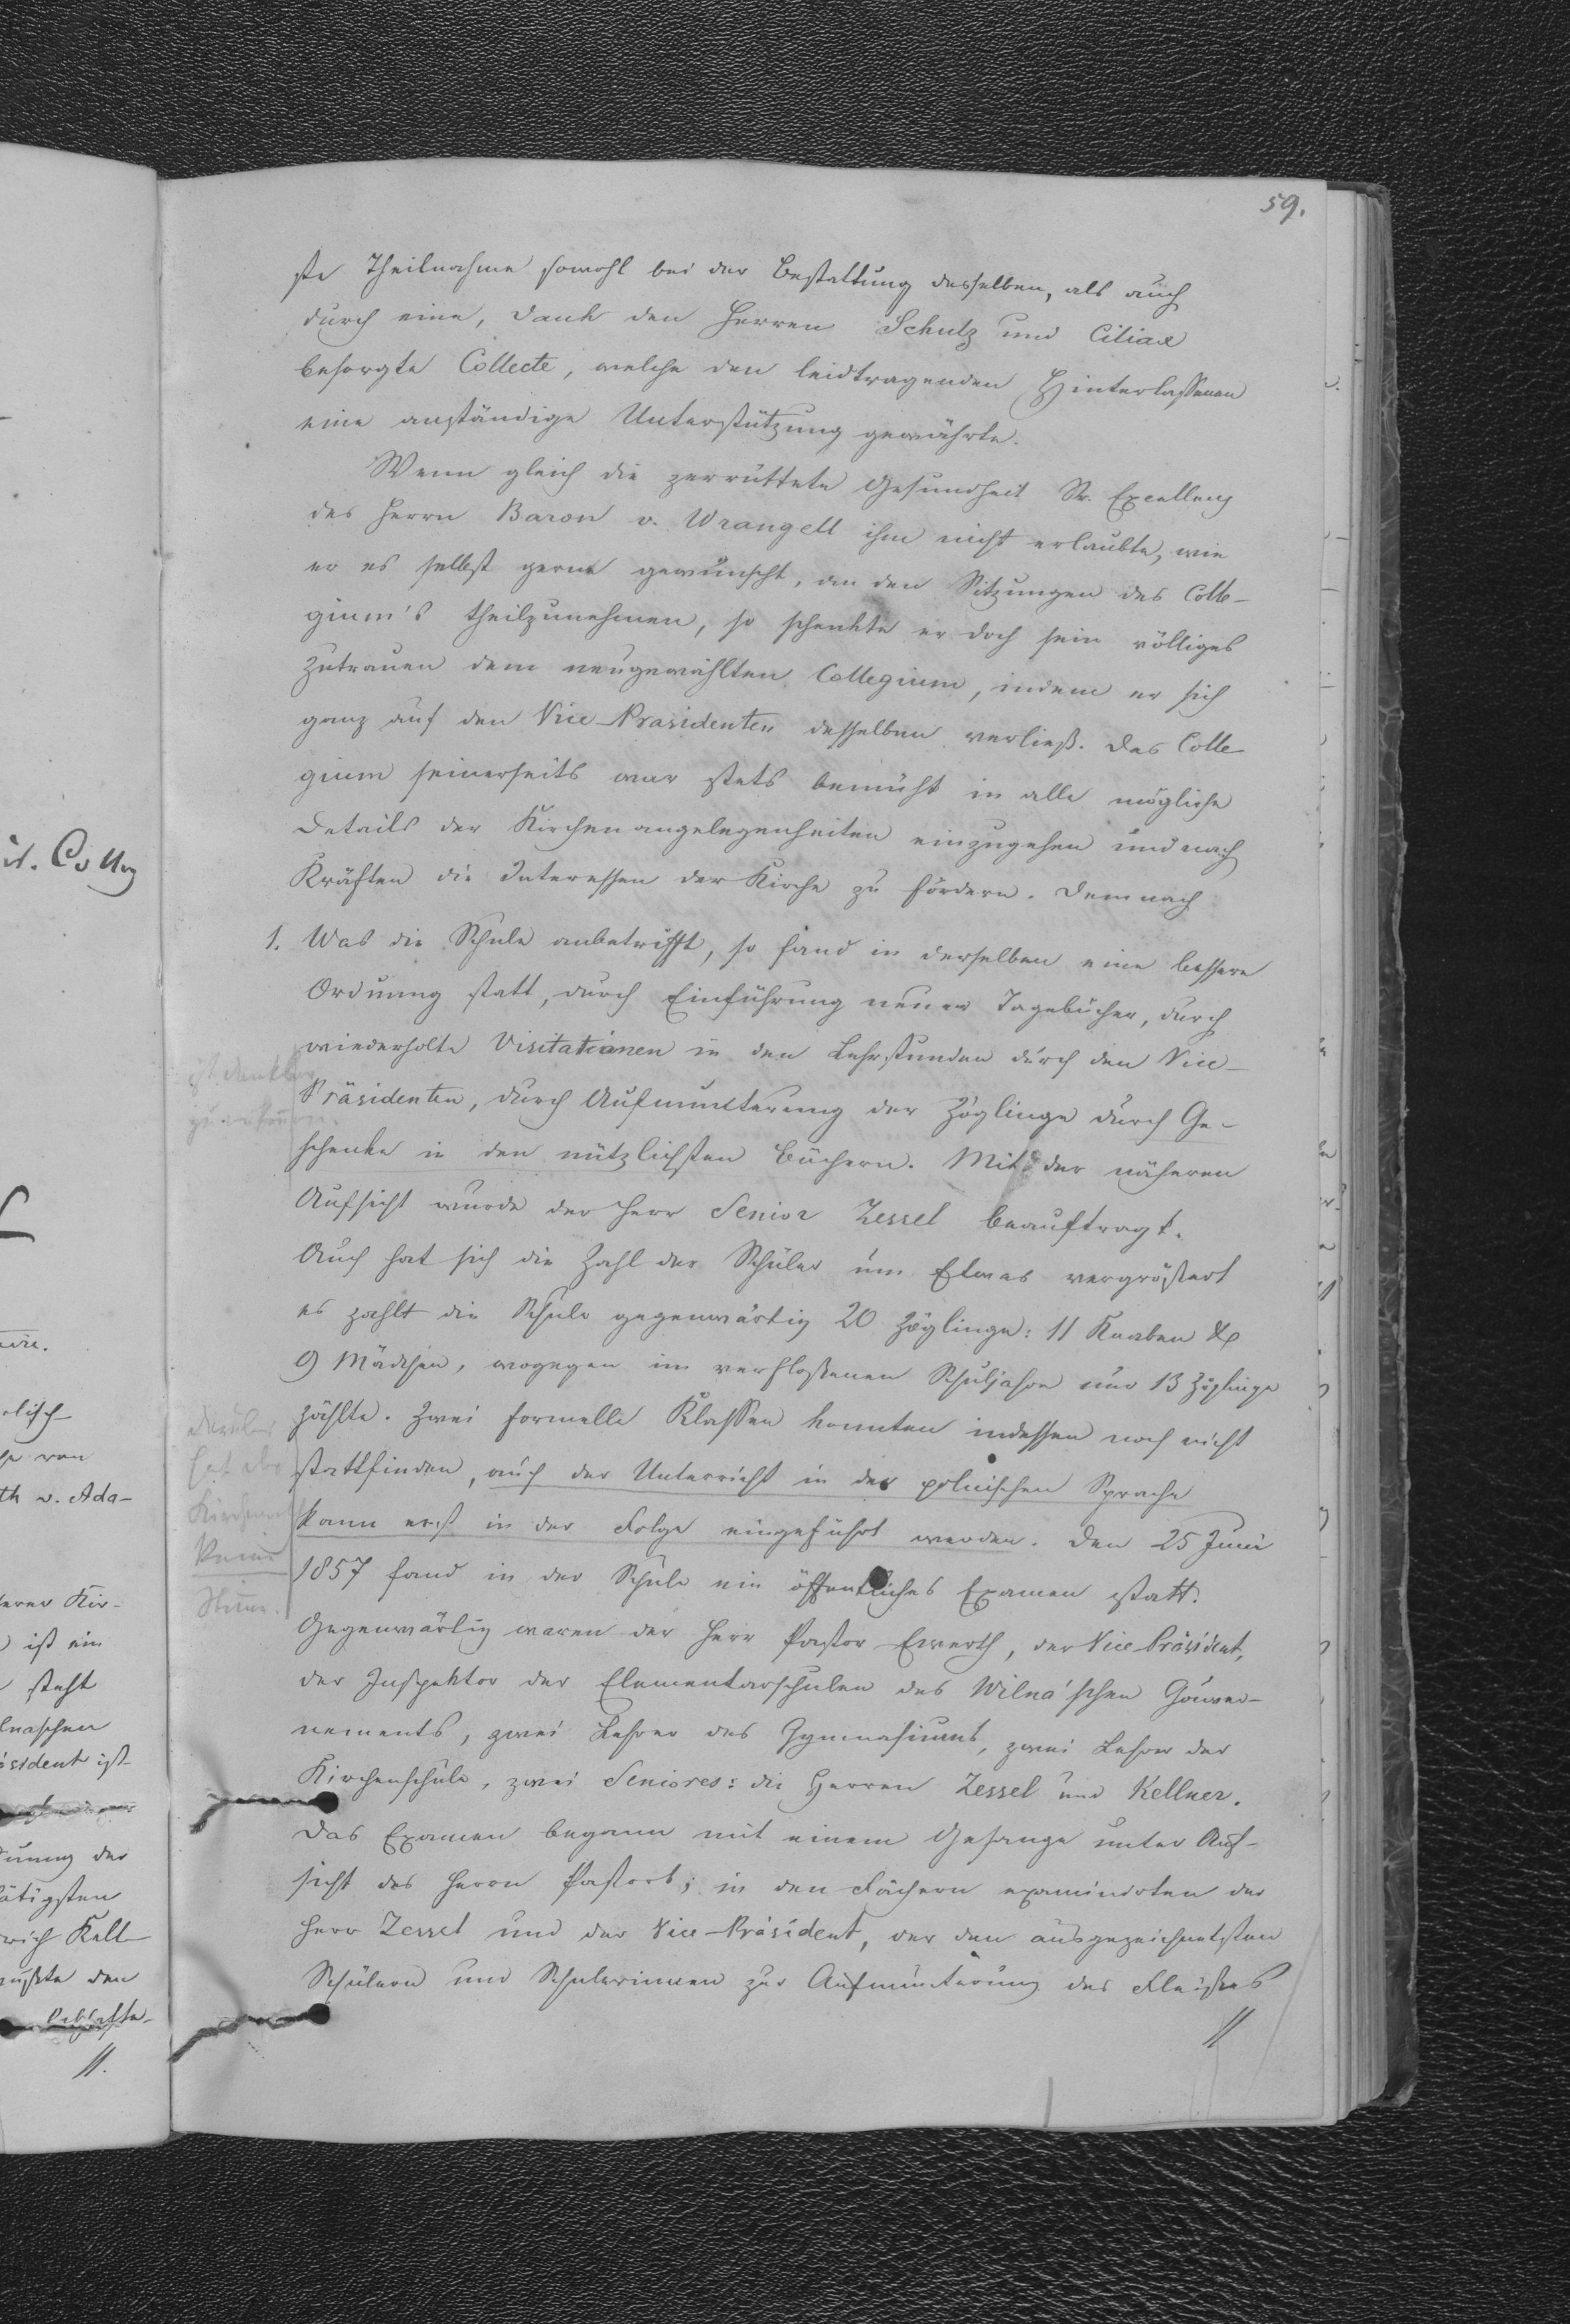 59.
ste Theilnahme sowohl bei der Bestattung desselben, als auch
durch eine, Dank den Herren Schulz und Ciliax
besorgte Collecte, welche den leidtragenden Hinterlassenen
eine anständige Unterstützung gewährte.
Wenn gleich die zerrüttete Gesundheit Sr. Excellenz
des Herrn Baron v. Wrangell ihm nicht erlaubte, wie
er es selbst gerne gewünscht, an den Sitzungen des Colle-
gium's theilzunehmen, so schenkte er doch sein völliges
Zutrauen dem neugewählten Collegium, indem er sich
ganz auf den Vice-Präsidenten desselben verließ. Das Colle
gium seinerseits war stets bemüht in alle mögliche
Details der Kirchenangelegenheiten einzugehen und nach
Kräften die Interessen der Kirche zu fördern. Demnach
1. Was die Schule anbetrifft, so fand in derselben eine bessere
Ordnung statt, durch Einführung neuer Tagebücher, durch
wiederholte Visitationen in den Lehrstunden durch den Vice-
Präsidenten, durch Aufmunterung der Zöglinge durch Ge-
schenke in den nützlichsten Büchern. Mit der näheren
Aufsicht wurde der Herr Senior Zessel beauftragt.
Auch hat sich die Zahl der Schüler um Etwas vergrößert
es zahlt die Schule gegenwärtig 20 Zöglinge: 11 Knaben &
9 Mädchen, wogegen im verfloßenen Schuljahre nur 13 Zöglinge
zählte. Zwei formelle Klassen konnten indessen noch nicht
stattfinden, auch der Unterricht in der polnischen Sprache
kann erst in der Folge eingeführt werden. Den 25 Juni
1857 fand in der Schule ein öffentliches Examen statt.
Gegenwärtig waren der Herr Pastor Ewerth, der Vice Präsident,
der Inspektor der Elementarschulen des Wilna'schen Gouver-
nements, zwei Lehrer des Gymnasiums, zwei Lehrer der
Kirchenschule, zwei Seniores: die Herren Zessel und Kellner.
Das Examen begann mit einem Gesange unter Auf-
sicht des Herrn Pastors; in den Fächern examinirten der
Herr Zessel und der Vice-Präsident, der den ausgezeichnetsten
Schülern und Schulerinnen zur Aufmunterung des Fleißes
//
ist dankbar
darüber
hat der
keine
Stimme.